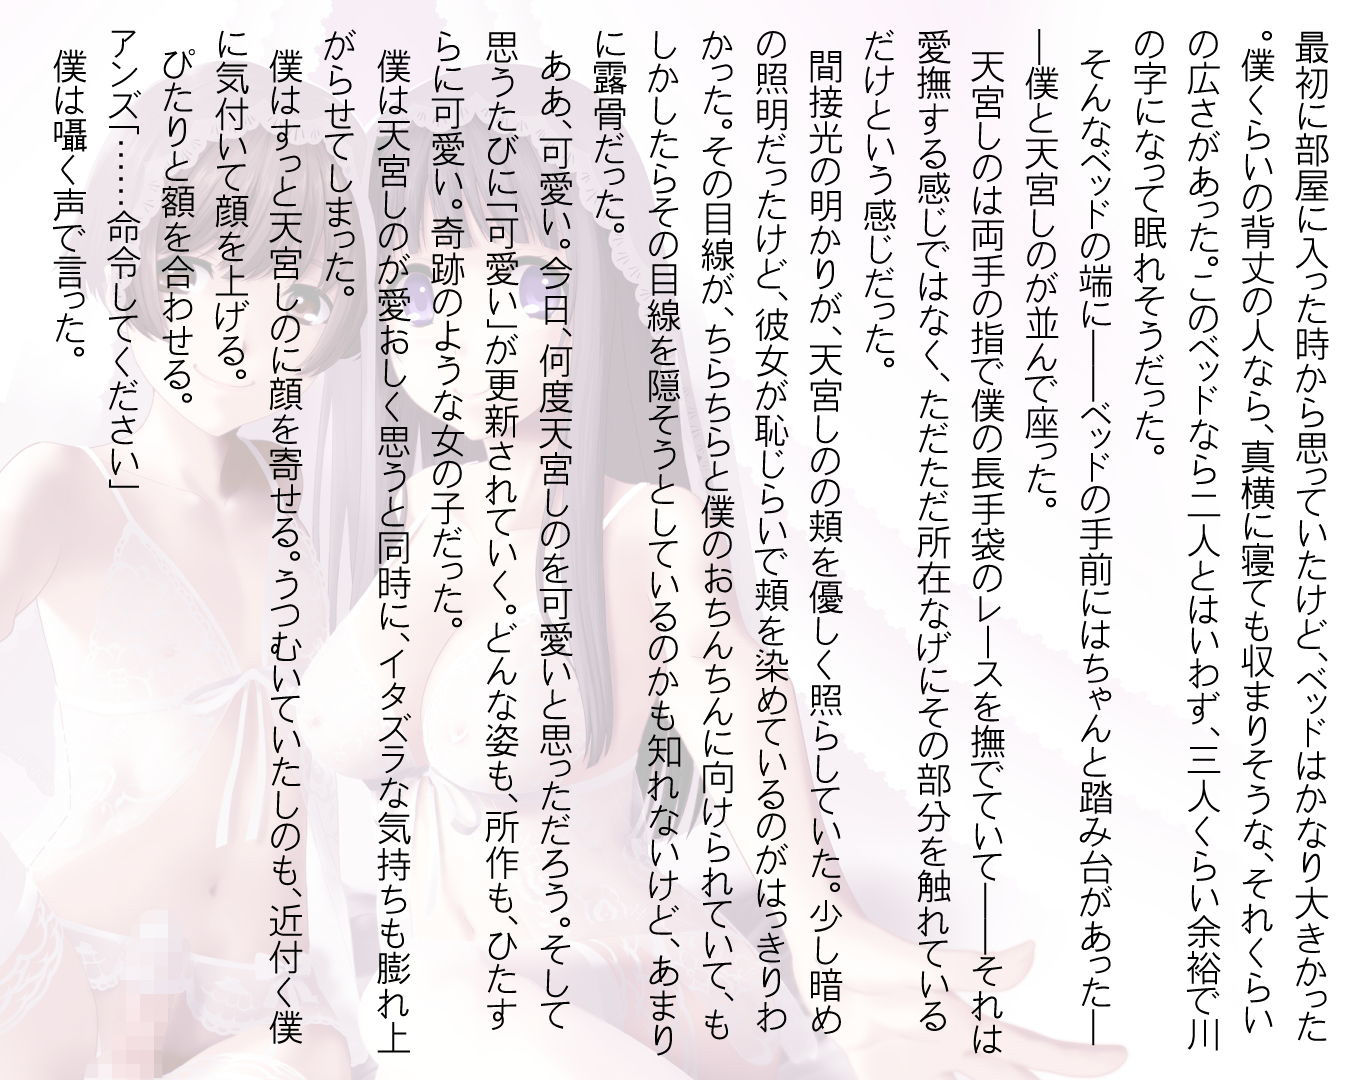 最初に部屋に入った時から思っていたけど、ベッドはかなり大きかった
。僕くらいの背丈の人なら、真横に寝ても収まりそうな、それくらい
の広さがあった。このベッドなら二人とはいわず、三人くらい余裕で川
の字になって眠れそうだった。
そんなベッドの端に――ベッドの手前にはちゃんと踏み台があった―
―僕と天宮しのが並んで座った。
天宮しのは両手の指で僕の長手袋のレースを撫でていて――それは
愛撫する感じではなく、ただただ所在なげにその部分を触れている
だけという感じだった。
間接光の明かりが、天宮しのの頬を優しく照らしていた。少し暗め
の照明だったけど、彼女が恥じらいで頬を染めているのがはっきりわ
かった。その目線が、ちらちらと僕のおちんちんに向けられていて、も
しかしたらその目線を隠そうとしているのかも知れないけど、あまり
に露骨だった。
ああ、可愛い。今日、何度天宮しのを可愛いと思っただろう。そして
思うたびに「可愛い」が更新されていく。どんな姿も、所作も、ひたす
らに可愛い。奇跡のような女の子だった。
僕は天宮しのが愛おしく思うと同時に、イタズラな気持ちも膨れ上
がらせてしまった。
僕はすっと天宮しのに顔を寄せる。うつむいていたしのも、近付く僕
に気付いて顔を上げる。
ぴたりと額を合わせる。
アンズ「……命令してください」
僕は囁く声で言った。